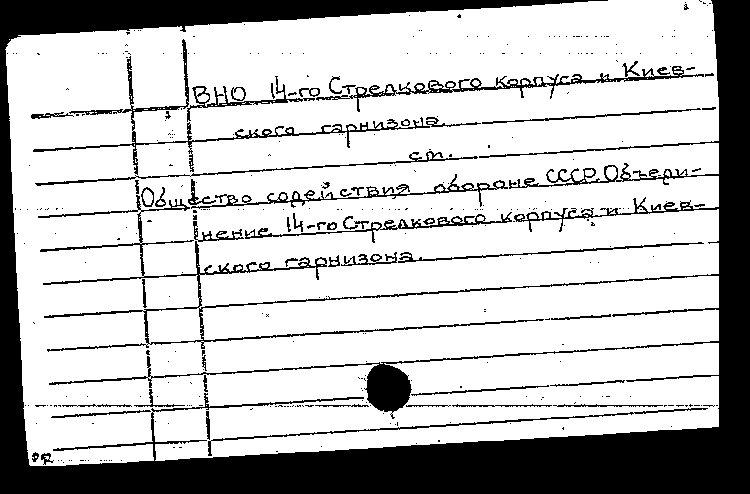 ВНО 14-го Стрелкового корпуса и Киев-
ского гарнизона.
см.
Общество содействия обороне СССР. Объеди-
нение 14-го Стрелкового корпуса и Киев-
ского гарнизона.